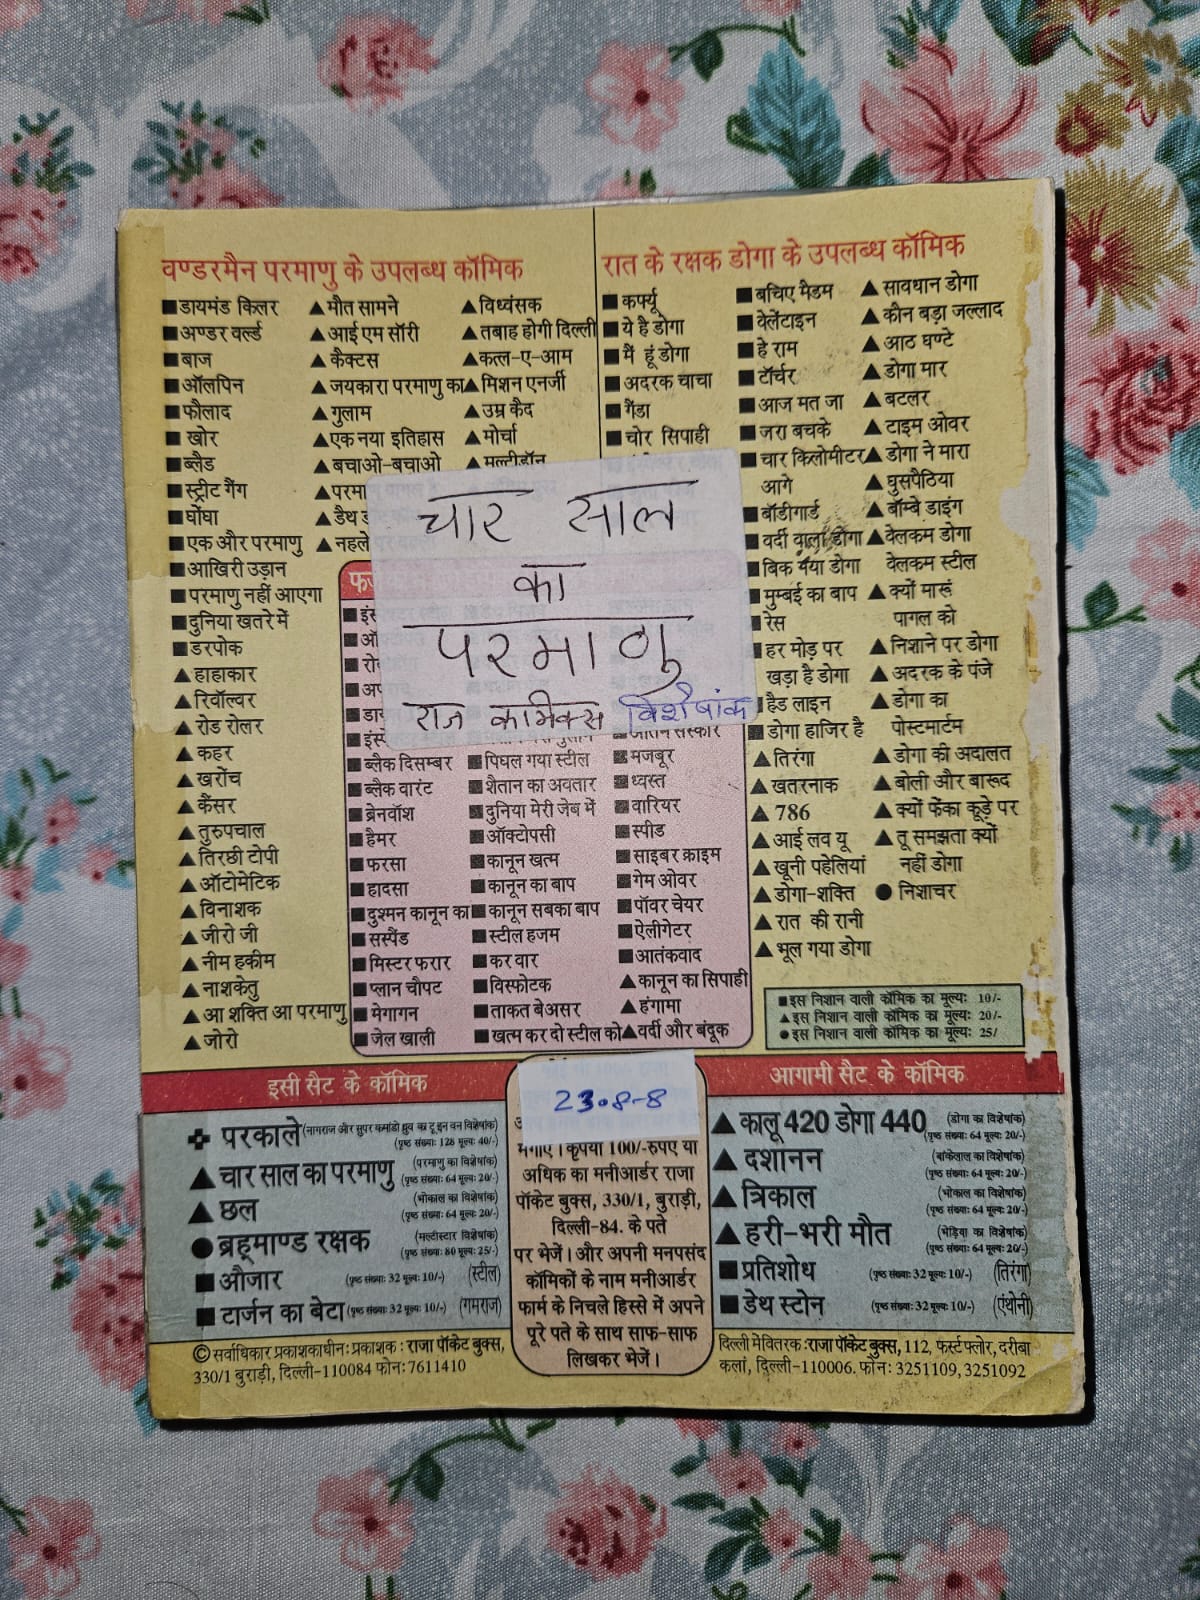 वण्डरमैन परमाणु के उपलब्ध कॉमिक
■ डायमंड किलर
■ अण्डर वर्ल्ड
■ बाज
■ ऑलपिन
■ फौलाद
■ खोर
■ ब्लैड
■ स्ट्रीट गैंग
■ घोंघा
■ एक और परमाणु
■ आखिरी उड़ान
■ परमाणु नहीं आएगा
■ दुनिया खतरे में
■ डरपोक
▲ हाहाकार
▲ रिवॉल्वर
▲ रोड रोलर
▲ कहर
▲ खरोंच
▲ कैंसर
▲ तुरुपचाल
▲ तिरछी टोपी
▲ ऑटोमेटिक
▲ विनाशक
▲ जीरो जी
▲ नीम हकीम
▲ नाशकेतु
▲ आ शक्ति आ परमाणु
▲ जोरो
▲ मौत सामने
▲ आई एम सॉरी
▲ कैक्टस
▲ जयकारा परमाणु का
▲ गुलाम
▲ एक नया इतिहास
▲ बचाओ-बचाओ
▲ परमा
▲ डैथ
▲ नहले
▲ विध्वंसक
▲ तबाह होगी दिल्ली
▲ कत्ल-ए-आम
▲ मिशन एनर्जी
▲ उम्र कैद
▲ मोर्चा
▲ मल्टीडॉन
रात के रक्षक डोगा के उपलब्ध कॉमिक
■ कर्फ्यू
■ ये है डोगा
■ मैं हूं डोगा
■ अदरक चाचा
■ गैंडा
■ चोर सिपाही
■ बचिए मैडम
■ वेलेंटाइन
■ हे राम
■ टॉर्चर
■ आज मत जा
■ जरा बचके
■ चार किलोमीटर
आगे
■ बॉडीगार्ड
■ वर्दी वाला डोगा
■ बिक गया डोगा
■ मुम्बई का बाप
■ रेस
■ हर मोड़ पर
खड़ा है डोगा
■ हैड लाइन
■ डोगा हाजिर है
▲ तिरंगा
▲ खतरनाक
▲ 786
▲ आई लव यू
▲ खूनी पहेलियां
▲ डोगा-शक्ति
▲ रात की रानी
▲ भूल गया डोगा
▲ सावधान डोगा
▲ कौन बड़ा जल्लाद
▲ आठ घण्टे
▲ डोगा मार
▲ बटलर
▲ टाइम ओवर
▲ डोगा ने मारा
▲ घुसपैठिया
▲ बॉम्बे डाइंग
▲ वेलकम डोगा
वेलकम स्टील
▲ क्यों मारूं
पागल को
▲ निशाने पर डोगा
▲ अदरक के पंजे
▲ डोगा का
पोस्टमार्टम
▲ डोगा की अदालत
▲ बोली और बारूद
▲ क्यों फेंका कूड़े पर
▲ तू समझता क्यों
नहीं डोगा
● निशाचर
चार साल
का
परमाणु
राज कामिक्स विशेषांक
■ ब्लैक दिसम्बर
■ ब्लैक वारंट
■ ब्रेनवॉश
■ हैमर
■ फरसा
■ हादसा
■ दुश्मन कानून का
■ सस्पैंड
■ मिस्टर फरार
■ प्लान चौपट
■ मेगागन
■ जेल खाली
■ पिघल गया स्टील
■ शैतान का अवतार
■ दुनिया मेरी जेब में
■ ऑक्टोपसी
■ कानून खत्म
■ कानून का बाप
■ कानून सबका बाप
■ स्टील हजम
■ कर वार
■ विस्फोटक
■ ताकत बेअसर
■ खत्म कर दो स्टील को
■ मजबूर
■ ध्वस्त
■ वारियर
■ स्पीड
■ साइबर क्राइम
■ गेम ओवर
■ पॉवर चेयर
■ ऐलीगेटर
■ आतंकवाद
▲ कानून का सिपाही
▲ हंगामा
▲ वर्दी और बंदूक
■ इस निशान वाली कॉमिक का मूल्य: 10/-
▲ इस निशान वाली कॉमिक का मूल्य: 20/-
● इस निशान वाली कॉमिक का मूल्य: 25/
इसी सैट के कॉमिक
✚ परकाले (नागराज और सुपर कमांडो ध्रुव का टू इन वन विशेषांक)
(पृष्ठ संख्या: 128 मूल्य: 40/-)
▲ चार साल का परमाणु (परमाणु का विशेषांक)
(पृष्ठ संख्या: 64 मूल्य: 20/-)
▲ छल (भोकाल का विशेषांक)
(पृष्ठ संख्या: 64 मूल्य: 20/-)
● ब्रह्माण्ड रक्षक (मल्टीस्टार विशेषांक)
(पृष्ठ संख्या: 80 मूल्य: 25/-)
■ औजार (पृष्ठ संख्या: 32 मूल्य: 10/-) (स्टील)
■ टार्जन का बेटा (पृष्ठ संख्या: 32 मूल्य: 10/-) (गमराज)
23.8-8
मंगाएं। कृपया 100/-रुपए या
अधिक का मनीआर्डर राजा
पॉकेट बुक्स, 330/1, बुराड़ी,
दिल्ली-84. के पते
पर भेजें। और अपनी मनपसंद
कॉमिकों के नाम मनीआर्डर
फार्म के निचले हिस्से में अपने
पूरे पते के साथ साफ-साफ
लिखकर भेजें।
आगामी सैट के कॉमिक
▲ कालू 420 डोगा 440 (डोगा का विशेषांक)
(पृष्ठ संख्या: 64 मूल्य: 20/-)
▲ दशानन (बांकेलाल का विशेषांक)
(पृष्ठ संख्या: 64 मूल्य: 20/-)
▲ त्रिकाल (भोकाल का विशेषांक)
(पृष्ठ संख्या: 64 मूल्य: 20/-)
▲ हरी-भरी मौत (भेड़िया का विशेषांक)
(पृष्ठ संख्या: 64 मूल्य: 20/-)
■ प्रतिशोध (पृष्ठ संख्या: 32 मूल्य: 10/-) (तिरंगा)
■ डेथ स्टोन (पृष्ठ संख्या: 32 मूल्य: 10/-) (एंथोनी)
© सर्वाधिकार प्रकाशकाधीन: प्रकाशक : राजा पॉकेट बुक्स,
330/1 बुराड़ी, दिल्ली-110084 फोन: 7611410
दिल्ली में वितरक : राजा पॉकेट बुक्स, 112, फर्स्ट फ्लोर, दरीबा
कलां, दिल्ली-110006. फोन: 3251109, 3251092